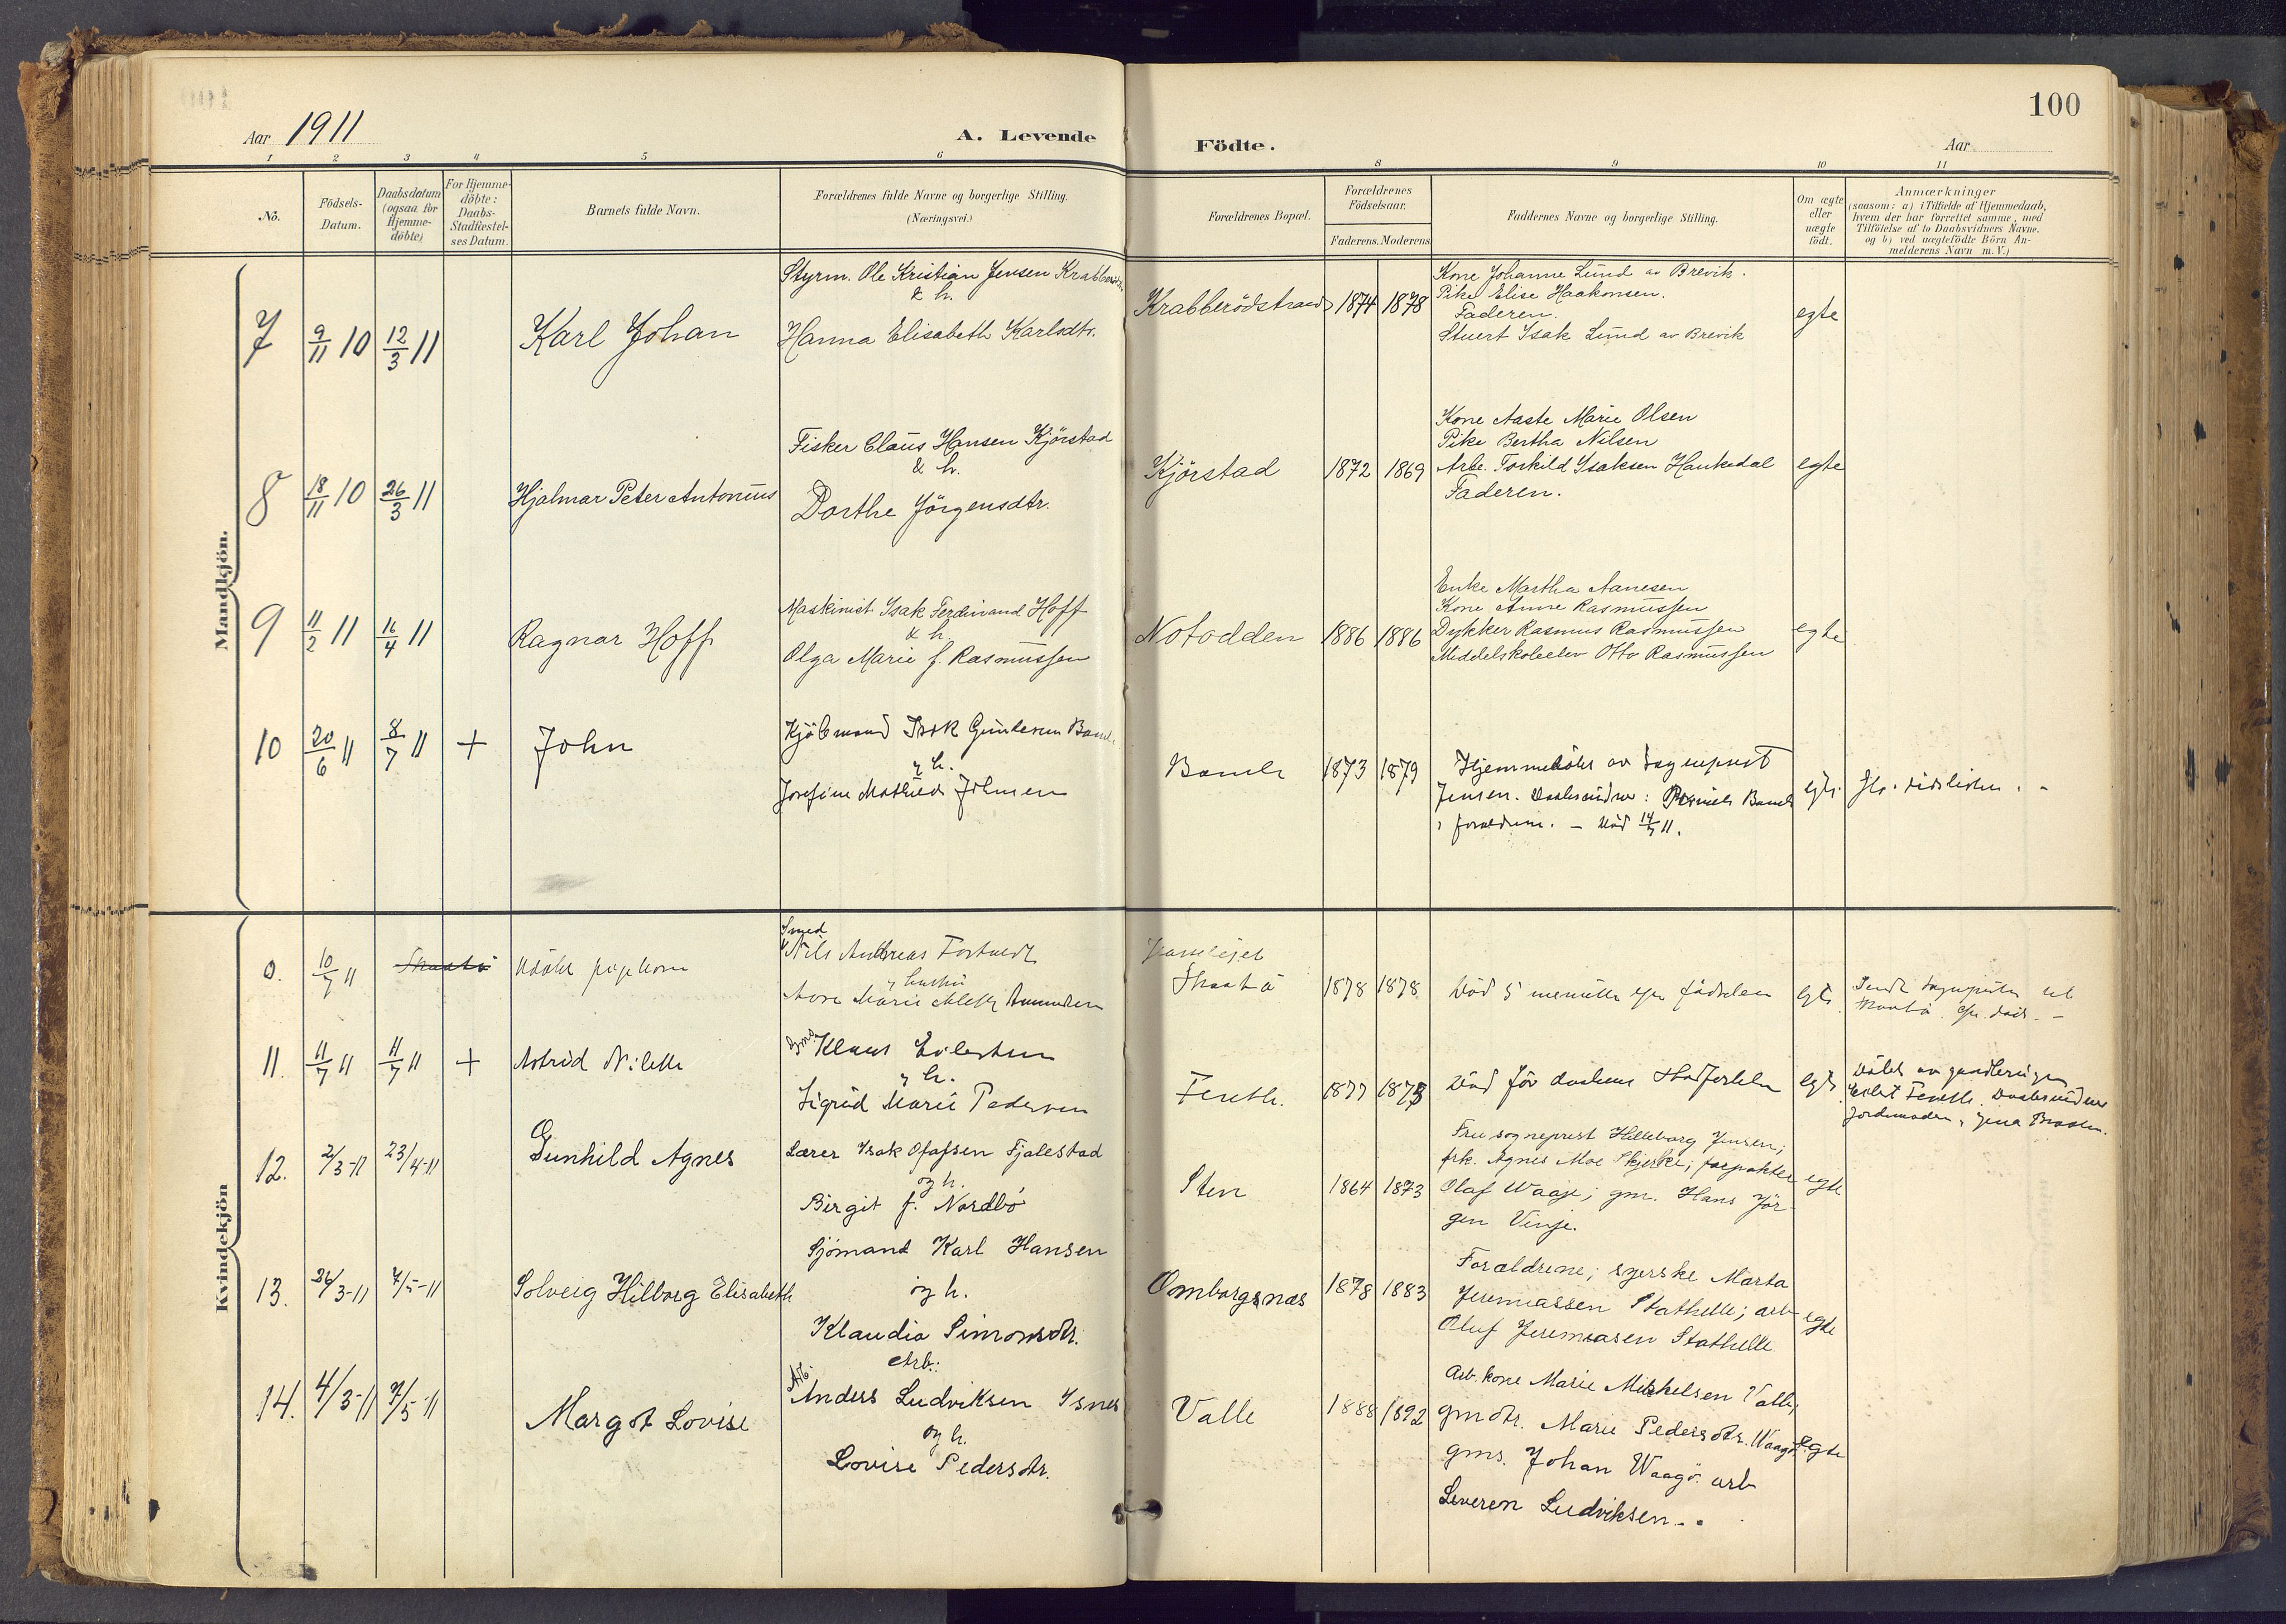 100
Aar 1911
A. Levende Födte.
Aar
1 2 3 4 5 6 8 9 10 11
No.
Födsels-Datum.
Daabsdatum (ogsaa for Hjemme-döbte)
For Hjemme-döbte: Daabs-Stadfæstel-ses Datum.
Barnets fulde Navn.
Forældrenes fulde Navne og borgerlige Stilling.
(Næringsvei.)
Forældrenes Bopæl.
Forældrenes Födselsaar.
Faderens. Moderens.
Faddernes Navne og borgerlige Stilling.
Om ægte eller uægte födt.
Anmærkninger
(saasom: a) i Tilfælde af Hjemmedaab,
hvem der har forrettet samme, med
Tilföielse af to Daabsvidners Navne.
og b) ved uægtefödte Börn An-
melderens Navn m.V.)
Mandkjön.
7 9/11 10 12/3 11 Karl Johan
Styrm. Ole Kristian Jensen
& h.
Hanna Elisabeth Karlsdtr.
Krabberödstrand 1874 1878
Kone Johanne Lund av Brevik.
Pike Elise Haakonsen.
Faderen.
Stuert Isak Lund av Brevik
egte
8 18/11 10 26/3 11 Hjalmar Peter Antonius
Fisker Claus Hansen Kjörstad
& h.
Dorthe Jörgensdtr.
Kjörstad 1872 1869
Kone Aaste Marie Olsen
Pike Bertha Nilsen
Arbe. Torkild Isaksen Haukedal
Faderen.
egte
9 11/2 11 16/4 11 Ragnar Hoff
Maskinist Isak Ferdinand Hoff
& h.
Olga Marie f. Rasmussen
Notodden 1886 1886
Enke Martha Aanesen
Kone Anne Rasmussen
Dykker Rasmus Rasmussen
Middelskoleelev Otto Rasmussen
egte
10 20/6 11 8/7 11 + John
Kjöbmand Isak Gundersen
& h.
Josefine Mathilde
Bamle 1873 1879
Hjemmedöbt av sogneprest
Jensen. Daabsvidner: Bamle
forældrene. - Död 14/7 11.
egte
Kvindekjön
0. 10/7 11 Udöbt pigebarn
Smed
Nils Andreas
Skaatö 1878 1878
Död 5 minutter efter födselen
egte
11. 11/7 11 11/7 11 + Astrid Nilette
Klaus
& h.
Sigrid Marie Pedersen
1877 1873
Död för daabens stadfestelse
egte
12. 2/3-11 23/4-11 Gunhild Agnes
Lærer Isak Olafsen Fjalestad
og h.
Birgit f. Nordbö
Sten 1864 1873
Fru sogneprest Hilleborg Jensen;
frk. Agnes Moe; forpakter
Olaf Waaje; gm. Hans Jör-
gen Vinje.
egte
13. 26/3-11 7/5-11 Solveig Hilborg Elisabeth
Sjömand Karl Hansen
og h.
Klaudia Simonsdtr.
Omborgsnæs 1878 1883
Forældrene; syerske Marta
Jeremiassen Stathelle; arb
Oluf Jeremiasen Stathelle
egte
14. 4/3-11 7/5-11 Margot Lovise
Arb.:
Anders Ludviksen
og h.
Lovise Pedersdtr.
Valle 1888 1892
Arb. kone Marie Mikkelsen Valle;
gmdtr. Marie Pedersdtr. Waagö
gms. Johan Waagö. arb
Severen Ludviksen..
egte